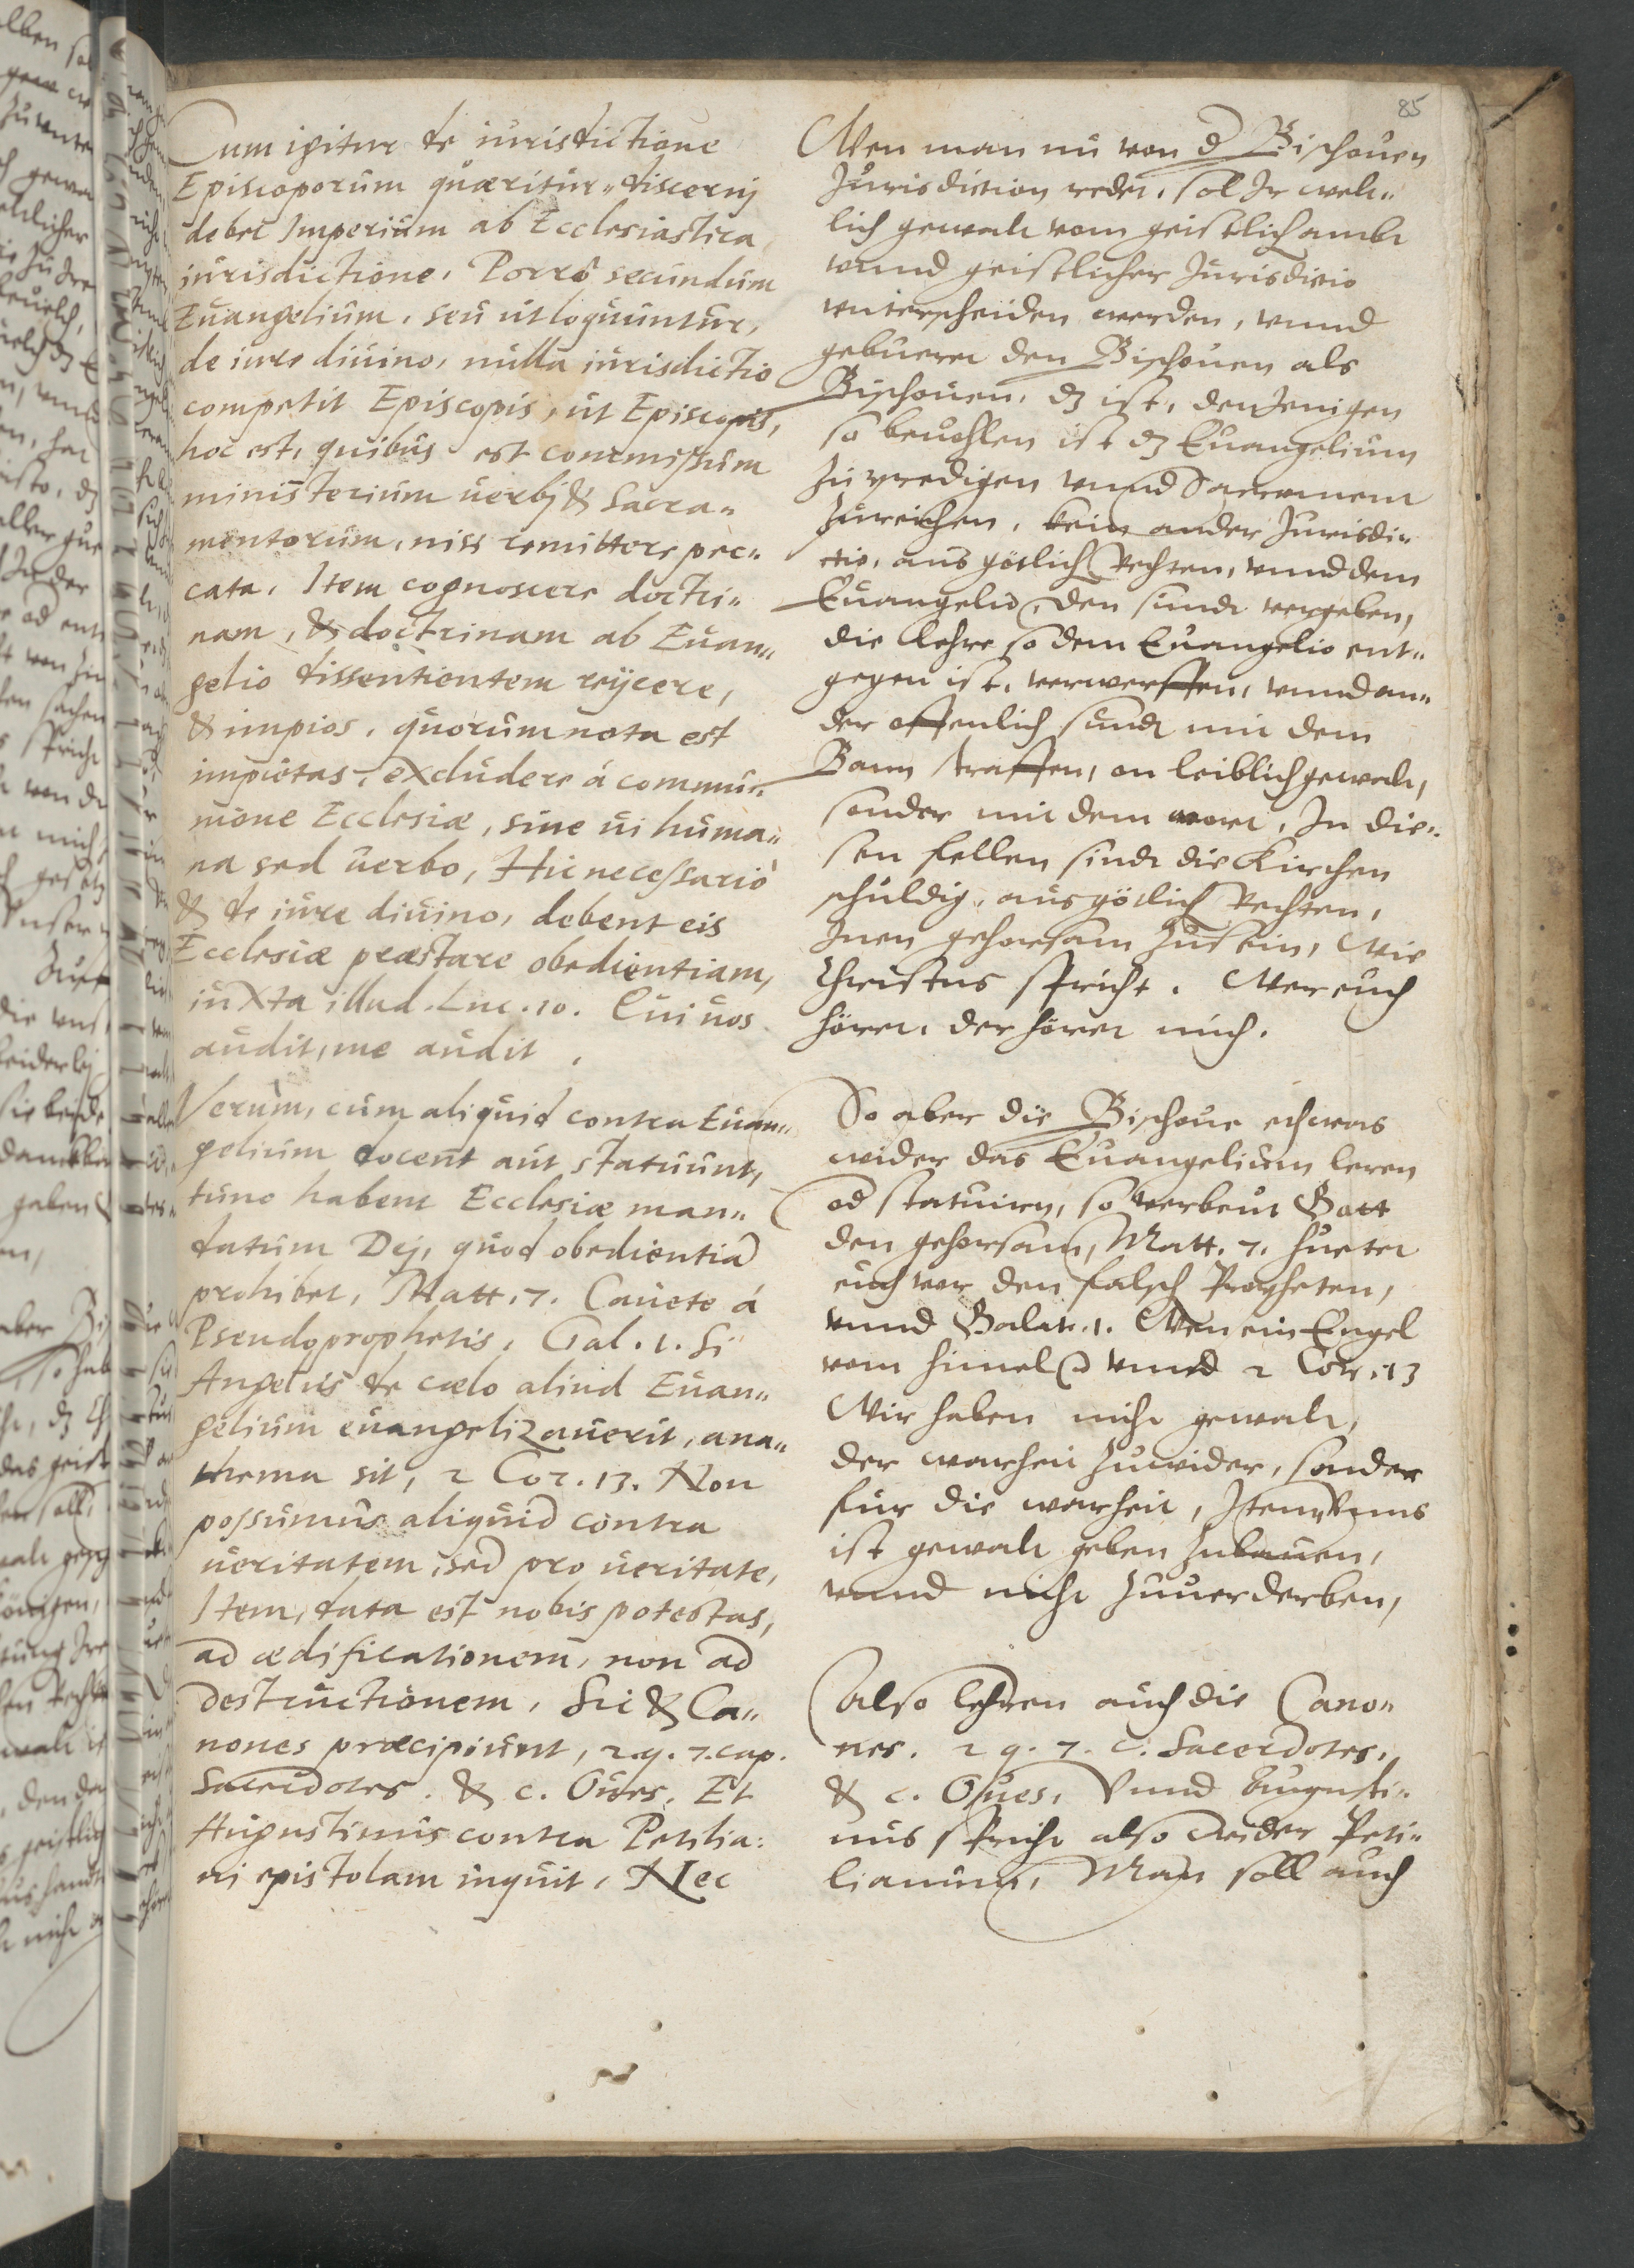 85
Cum igitur de iurisdictione
Episcoporum quæritur, discernj
debet Imperium ab Ecclesiastica
iurisdictione, Porrò secundum
Euangelium, seu ut loquuntur,
de iure diuino, nulla iurisdictio
competit Episcopis, ut Episcopis,
hoc est, quibus est commissum
ministerium uerbj & Sacra-
mentorum, nisi remittere pec-
cata, Item cognoscere doctri-
nam, & doctrinam ab Euan-
gelio dissentientem reijcere,
& impios, quorum nota est
impietas, excludere á commu-
nione Ecclesiæ, sine ui huma-
na sed uerbo, Hic necessariò
& de iure diuino, debent eis
Ecclesiæ præstare obedientiam,
iuxta illud. Luc. 10. Qui uos
audit, me audit,
Verum, cum aliquid contra Euan-
gelium docent aut statuunt,
tunc habent Ecclesiæ man-
datum Dej, quod obedientiã
prohibet, Matt. 7. Cauete á
Pseudoprophetis, Gal. 1. Si
Angelus de cælo aliud Euan-
gelium euangelizauerit, ana-
thema sit, 2 Cor. 13. Non
possumus aliquid contra
ueritatem, sed pro ueritate,
Item, data est nobis potestas,
ad ædificationem, non ad
destructionem, Sic & Ca-
nones præcipiunt, 2. q. 7. cap.
Sacerdotes. & c. Oues, Et
Augustinus contra Petilia:
ni epistolam inquit, Nec
Wen man nu von d Bischouen
Jurisdiction redet, sol Ir welt-
lich gewalt vom geistlich ambt
vnnd geistlicher Jurisdictio
vnterscheiden werden, vnnd
gebueret den Bischouen als
Bischouen, dz ist, denJenigen
so beuohlen ist dz Euangelium
Zu predigen vnnd Sacrament
Zureichen, kein ander Jurisdi-
ctio, aus götlich Rechten, vnnd dem
Euangelio, den sundt vergeben,
die lehre so dem Euangelio ent-
gegen ist, verwerffen, vnnd an-
der offenlich sundt mit dem
Bann straffen, on leiblich gewalt,
sonder mit dem wort, In die-
sen fellen sindt die Kirchen
schuldig, aus götlich Rechten,
Inen gehorsam Zusein, Wie
Christus spricht. Wer euch
höret, der höret mich.
So aber die Bischoue ethwas
wider das Euangelium leren
od statuirn, so verbeut Gott
den gehorsam, Matt. 7. huetet
euch vor den falsch Propheten,
vnnd Galat. 1. Wen ein Engel
vom himel vnnd 2 Cor. 13
Wir haben nicht gewalt,
der warheit Zuwider, sonder
fur die warheit, Item Vnns
ist gewalt geben Zubauen,
vnnd nicht Zuuerderben,
Also lehren auch die Cano-
nes. 2 q. 7. c. Sacerdotes,
& c. Oues, Vnnd Augusti-
nus spricht also wider Peti-
lianum, Man soll auch